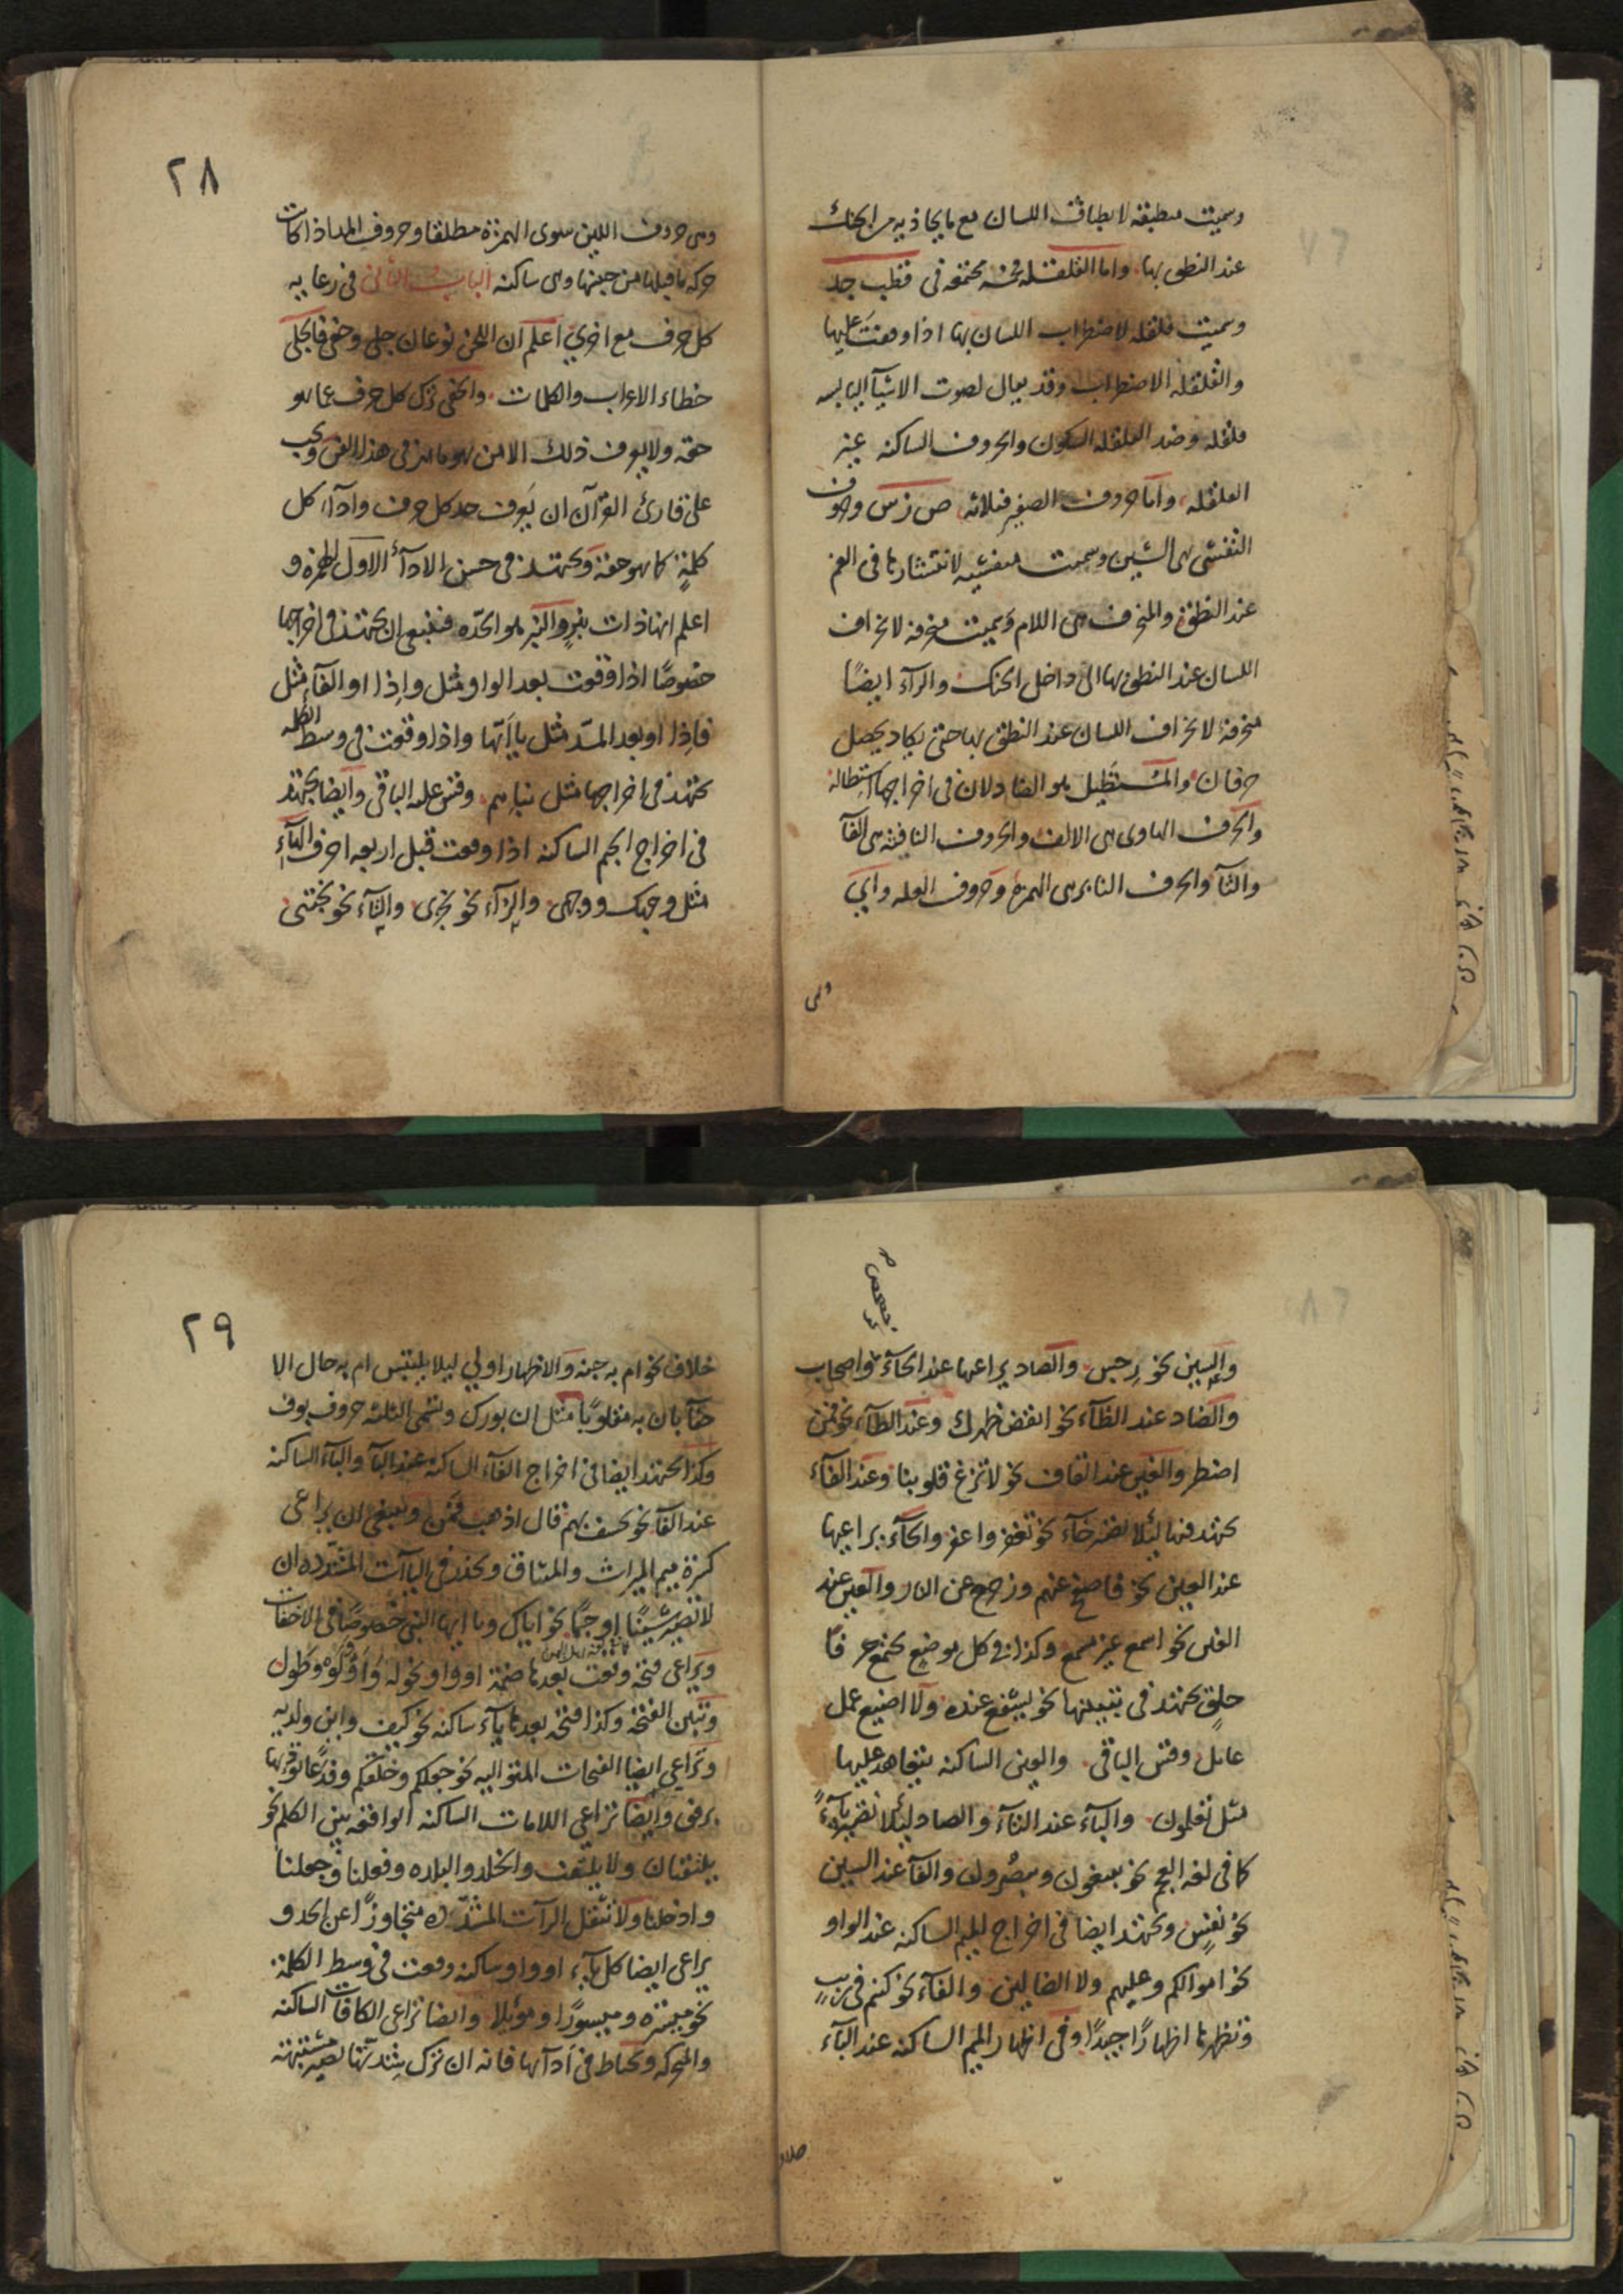 وسميت مطبقة لانطباق اللسان مع ما يحاذيه من الحنك
عند النطق بها واما القلقلة فخمسة مجتمعة في قطب جد
وسميت قلقلة لاضطراب اللسان بها اذا وقفت عليها
والقلقلة الاضطراب وقد يقال لصوت الاشيآ اليابسة
قلقلة وضد القلقلة السكون والحروف الساكنة غير
القلقلة واما حروف الصفير فثلاثة ص ز س وحروف
التفشي هي الشين وسميت متفشية لانتشارها في الفم
عند النطق والمنحرف هي اللام وسميت منحرفة لانحراف
اللسان عند النطق بها الى داخل الحنك والرآء ايضًا
منحرفة لانحراف اللسان عند النطق بها حتى يكاد يحصل
حرفان والمستطيل هو الضاد لان في اخراجها استطالة
والحرف الهاوى هى الالف والحروف النافثة هى الفآ
والثآ والحرف النابر هى الهمزة وحروف العلة وآي
وهى
٢٨
وهى حروف اللين سوى الهمزة مطلقا وحروف المد اذا كانت
حركة ما قبلها من جنسها وهى ساكنة الباب الثانى فى رعاية
كل حرف مع اخرى اعلم ان اللحن نوعان جلى وخفى فالجلى
خطاء الاعراب والكلمات والخفى ترك كل حرف عما هو
حقه ولا يعرف ذلك الا من هو ماهر فى هذا الفن ويجب
على قارئ القرآن ان يعرف حد كل حرف واداء كل
كلمة كما هو حقه ويجتهد فى حسن الادآء الاول الهمزة و
اعلم انها ذات نبر والنبر هو الحدة فينبغى ان يجتهد فى اخراجها
خصوصًا اذا وقعت بعد الواو مثل وإذا او الفآء مثل
فإذا او بعد المد مثل يا أيها واذا وقعت فى وسط الكلمة
يجتهد فى اخراجها مثل نبإهم وقس عليه الباقى وايضا يجتهد
فى اخراج الجيم الساكنة اذا وقعت قبل اربعة احرف الهآء
مثل وجهك ووجهى والزآء نحو تجزى والتآء نحو تجتنى
والسين نحو رجس والصاد يراعها عند الحآء واصحاب
والضاد عند الظآء نحو انقض ظهرك وعند الطآء نحو فمن
اضطر والغين عند القاف نحو لا تزغ قلوبنا وعند الفآء
يجتهد فيها لئلا تصير خآء نحو تغفر واغفر والحآء يراعيها
عند العين نحو فاصفح عنهم وزحزح عن النار والعين عند
الغين نحو اسمع غير مسمع وكذا فى كل موضع يجتمع حرفا
حلق يجتهد فى تبيينها نحو ليشفع عنده ولا اضيع عمل
عامل وقس الباقى والعين الساكنة يتعاهد عليها
مثل تعلمون والبآء عند التآء والصاد لئلا تصير پآءً
كما فى لغة العجم نحو يبتغون ويبصرون والفآ عند السين
نحو نفس ويجتهد ايضا فى اخراج الميم الساكنة عند الواو
نحو اموالكم وعليهم ولا الضالين والفآء نحو كنتم فى ريب
وتظهرها اظهارًا جيدًا وفى اظهار الميم الساكنة عند البآء
خلاف
٢٩
خلاف نحو ام به جنة والاظهار اولى ليلا يلتبس ام به حال الا
خفآ بان به مقلوبًا مثل ان بورك وتسمى الثلثة حروف بوف
وكذا يجتهد ايضا فى اخراج الفآء الساكنة عند البآ والبآء الساكنة
عند الفآ نحو نخسف بهم قال اذهب فمن وينبغى ان يراعى
كسرة ميم الميراث والميثاق ويحذر فى اليآآت المشددة ان
لا تصير شينًا او جيمًا نحو اياك ويا ايها النبى خصوصًا فى الاخفات
ويراعى فتحة وقعت بعدها ضمة او واو نحو له وقوله وطول
وتبين الفتحة وكذا فتحة بعدها يآء ساكنة نحو كيف وابن ولديه
وتراعي ايضا الفتحات المتواليه نحو جعلكم وخلقكم
برفق وايضا تراعي اللامات الساكنة الواقعة بين الكلم نحو
يلتقيان ولا يلتفت والخلد والبلده وفعلنا وجعلنا
وادخلنا ولا تثقل الرآت المشددة متجاوزًا عن الحد و
يراعى ايضا كل يآء او واو ساكنة وقعت فى وسط الكلمة
نحو ميسرة وميسورًا وموئلا وايضا تراعى الكافات الساكنة
والمتحركة ويحتاط فى ادآئها فانه ان ترك شدتها تصير مشتبهة